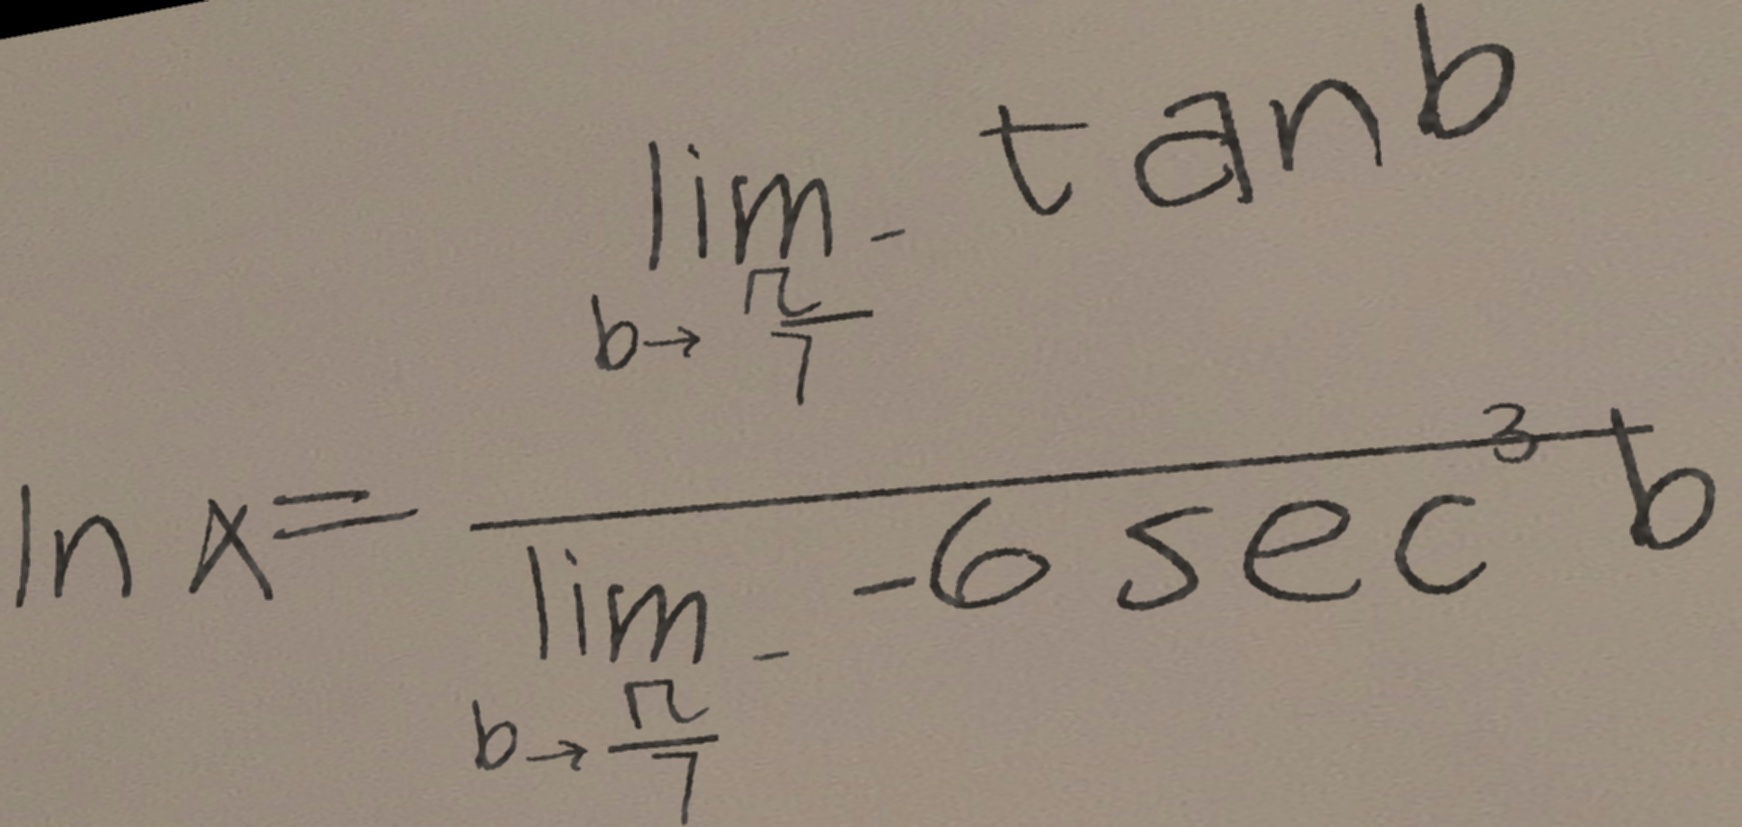 ln x = \frac{\lim_{b \to \frac{\pi}{7}^-} \tan b}{\lim_{b \to \frac{\pi}{7}^-} -6 \sec^3 b}